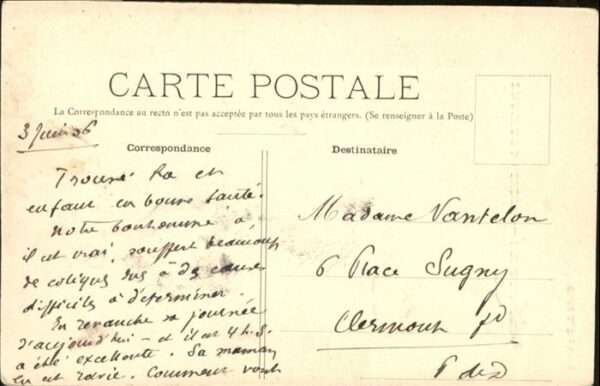 CARTE POSTALE
La Correspondance au recto n'est pas acceptée par tous les pays étrangers. (Se renseigner à la Poste)
3 Juin 06
Correspondance
Destinataire
Trouvé et
enfant en bonne santé.
Notre bonhomme a
il est vrai, souffert beaucoup
de coliques dus à des causes
difficiles à déterminer.
En revanche sa journée
d'aujourd'hui – et il est 4 h. S.
a été excellente. Sa maman
en est ravie. Comment vont
Madame Vantelon
6 Place Sugny
Clermont fd
P de D